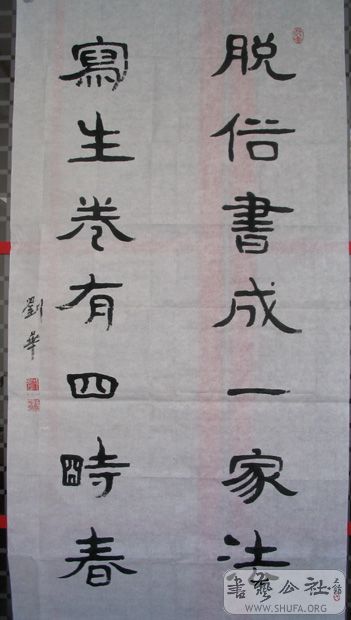 脱俗書成一家法
寫生卷有四時春
劉華
書藝公社
WWW.SHUFA.ORG